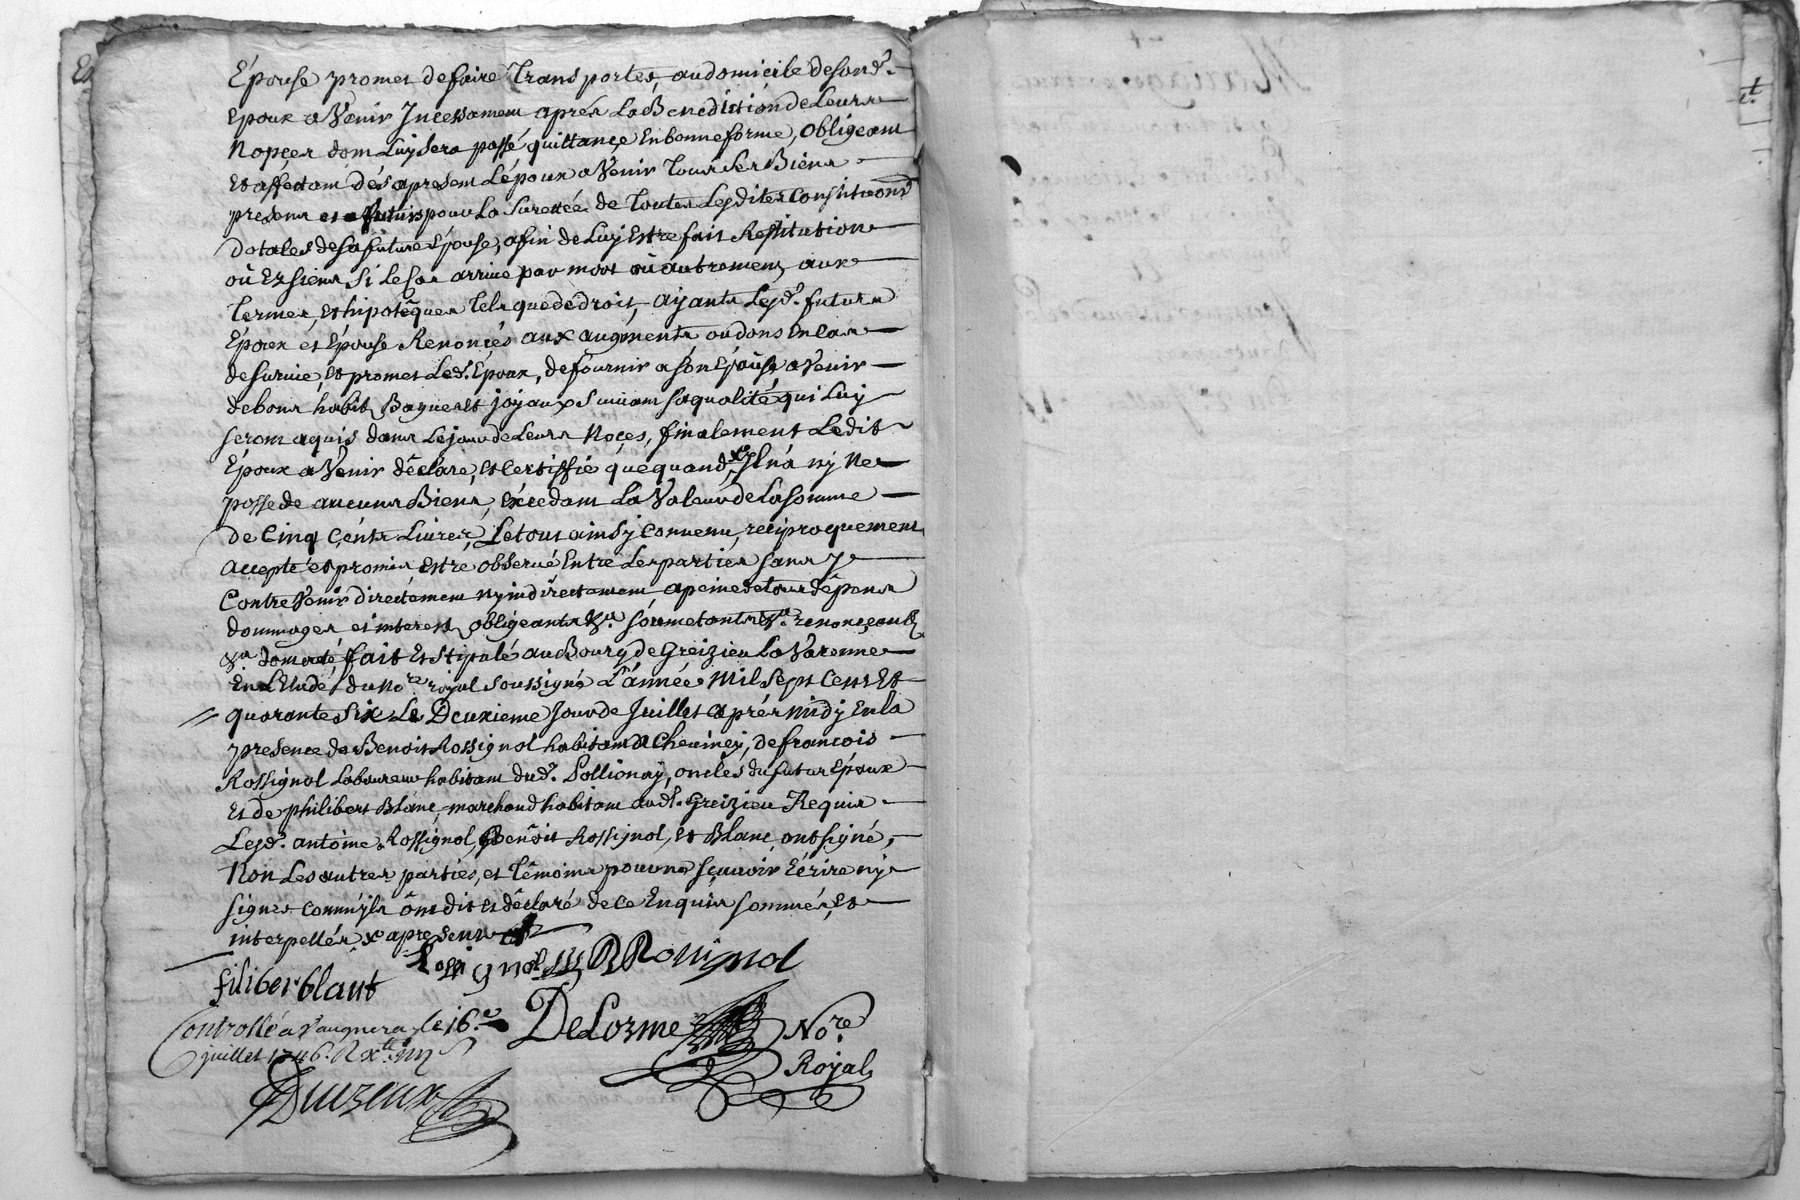 Épouse promet defaire Transporter, audomicile desond.
Epoux aVenir Jncessament aprés LaBenediction deLeurs
Nopçes dont Luy sera passé quittançe Enbonneforme, obligeant
Et affectant dés apresent L'époux aVenir Tous Ses Biens
presens et futurs pour La Suretée de Toutes Lesdites Constitutions
dotales desafuture Épouse, afin deLuy Estre fait Restitution
où Ez siens Si leCas arrive par mort oû autrement, aux
Termes, et hipotêques Tels quededroit, aÿants Lesd. futurs
Époux et Épouse Renonçés aux augments, oudons Encas
desurvie, et promet Led. Époux, defournir a sonÉpouse aVenir
debons habits Bagues et joyaux Suivant saqualité qui Luy
seront aquis dans Lejour deLeurs Noçes, finalement Ledit
Époux aVenir dêclare, et Certiffie quequand JLn'a ny Ne
possede aucuns Biens, éxcedant La Valeur deLasomme
de Cinq Çents Livres, Letout ainsy Convenu, reciproquement
accepté et promis Estre observé Entre Lesparties sans y
Contrevenir directement nyindirectement, apeine detous dêpens
dommages et'interests obligeants &a. soumetants &a. renonçeants
&a. dont acte, fait Et Stipulé auBourg de Greizieu LaVarenne
En L'Etude du No.re royal soussigné L'année Mil Sept Cent Et
quarante Six Le Deuxieme Jour de Juillet aprés midy Enla
presence de Benoit Rossignol habitant a Chevinay, defrancois
Rossignol Laboureur habitant dud. Pollionaÿ, oncles dufutur Époux
Et de philibert Blanc, marchand habitant aud. Greizieu Requis
Lesd. antoine Rossignol, Benôit Rossignol, et Blanc ont signé,
Non Les autres parties, et Têmoins pour ne sçavoir Eérire ny
signer comm'yls ônt dit et dêclaré de ce Enquis sommés, Et
interpellés
Rossignol BRossignol
filiber blant
Controllé a Vaugnera le 16.e DeLorme No.re
juillet 1746. R Royal
Duzeux